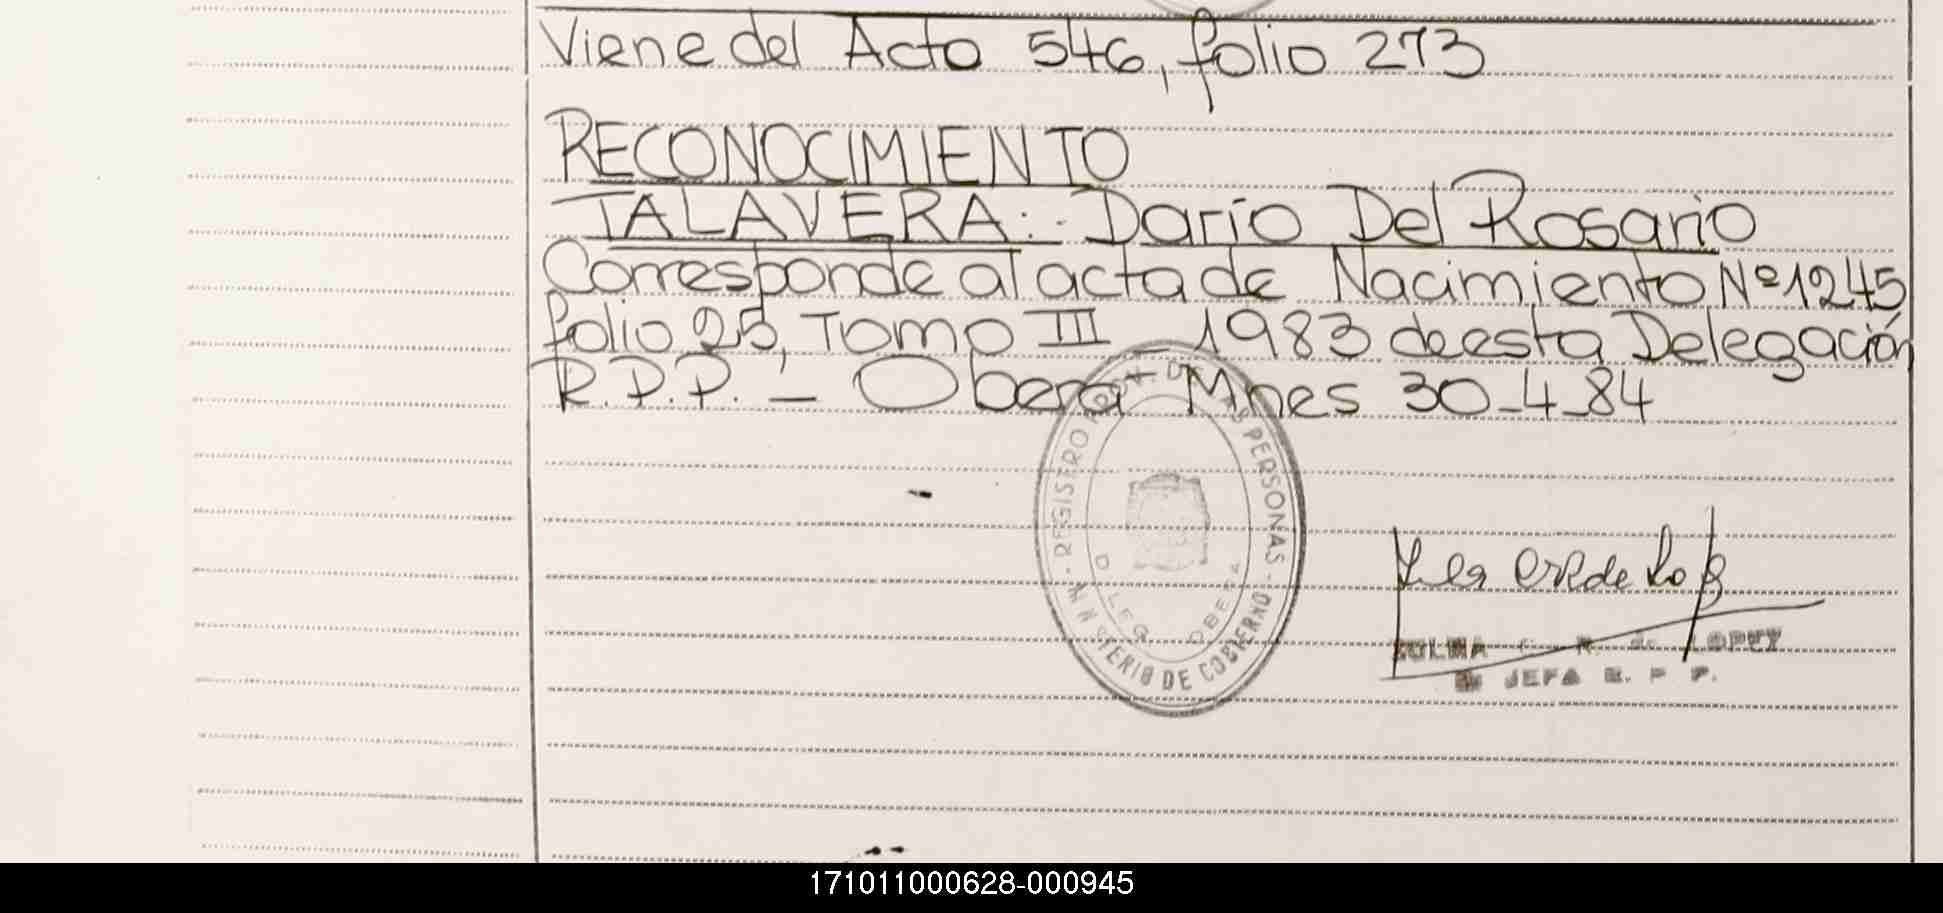 Viene del Acta 546, folio 273
RECONOCIMIENTO
TALAVERA: Darío Del Rosario
Corresponde al acta de Nacimiento Nº 1245
folio 25, Tomo III 1983 de esta Delegación
R.P.P. - Oberá Mnes 30-4-84
REGISTRO PROV. DE LAS PERSONAS
MINISTERIO DE GOBIERNO
DELEG OBERA
LOPEZ
JEFA R. P. P.
171011000628-000945